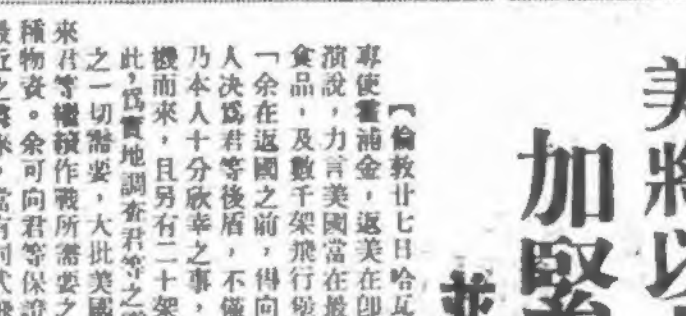 美將以
加緊
並
【倫敦廿七日哈瓦
專使霍浦金，返美在卽
演說，力言美國當在最
食品，及數千架飛行
「余在返國之前，得向
人决爲君等後盾，不僅
乃本人十分欣幸之事，
機而來，且另有二十架
此，爲實地調查君等之
之一切需要，大批美國
來君等繼續作戰所需要之
種物資。余可向君等保證
最近之將來，當有同式